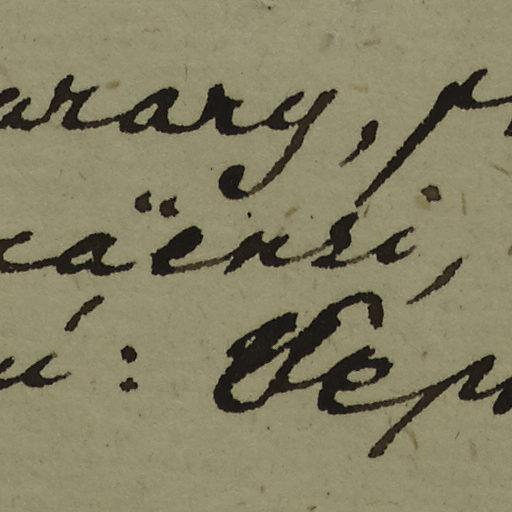 arary, p
caënsi,
ú: Vep